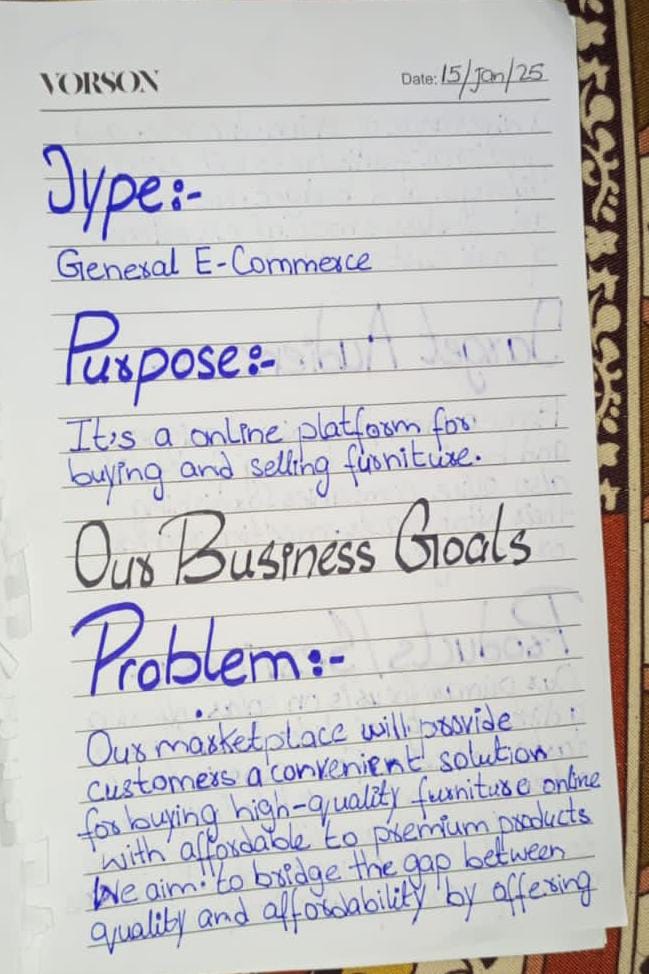 VORSON
Date: 15/Jan/25
Type:-
General E-Commerce
Purpose:-
It's a online platform for
buying and selling furniture.
Our Business Goals
Problem:-
Our marketplace will provide
customers a convenient solution
for buying high-quality furniture online
with affordable to premium products
We aim to bridge the gap between
quality and affordability by offering